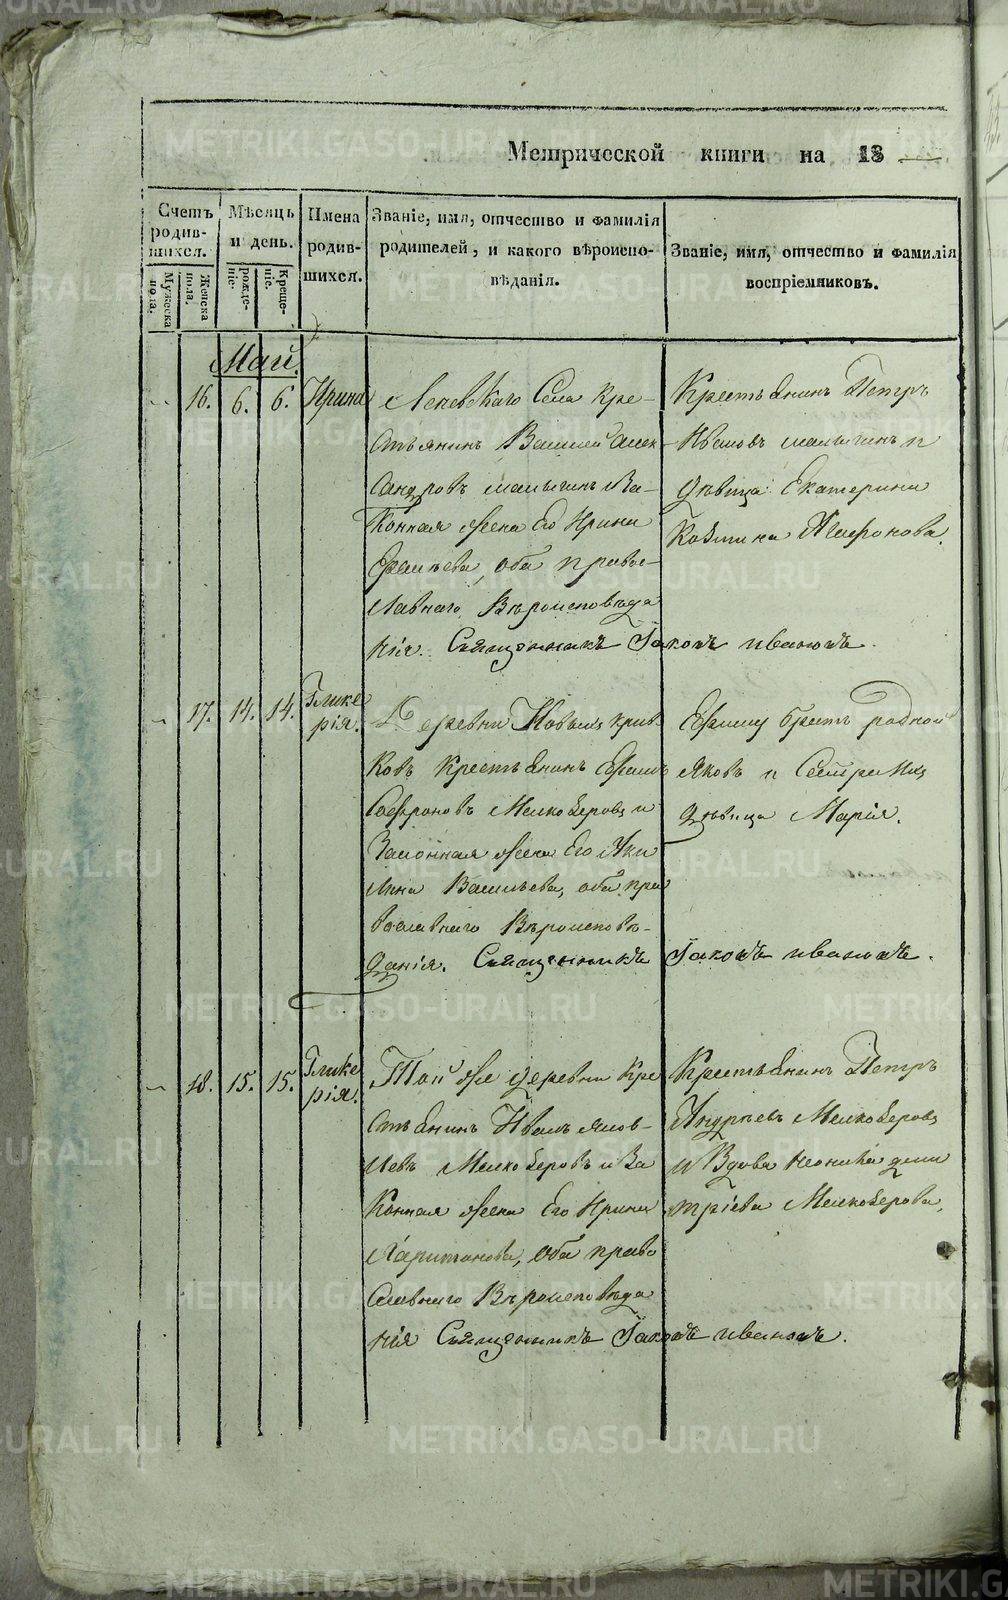 Метрической книги на 18
Счетъ родив-шихся.
Мужеска пола.
Женска пола.
Мѣсяцъ и день.
рожде-ніе.
Креще-ніе.
Имена родив-шихся.
Званіе, имя, отчество и фамилія
родителей, и какого вѣроиспо-
вѣданія.
Званіе, имя, отчество и фамилія
воспріемниковъ.
Май.
16. 6. 6. Ирина
Леневскаго Села кре-
стьянинъ Василий Алек
сандровъ малыгинъ и За-
конная жена Его Ирина
оба правос-
лавнаго Вѣроисповѣда
нія. Священникъ Іаковъ ивановъ.
Крестьянинъ Петръ
Ивановъ малыгинъ и
дѣвица Екатерина
Козмина Агафонова.
17. 14. 14. Глике
рія.
Деревни Новыхъ Крив
ковъ Крестьянинъ Ефимъ
Софроновъ Мелкозеровъ и
Законная жена Его Аки
лина Васильева, оба пра
вославнаго Вѣроисповѣ-
данія. Священникъ Іаковъ ивановъ.
Ефиму братъ родной
Яковъ и Сестра ихъ
дѣвица Марія.
18. 15. 15. Глике
рія.
Той же деревни Кре
стьянинъ Иванъ Яков-
левъ Мелкозеровъ и За
конная жена Его Ирина
Харитонова, оба право
славнаго Вѣроисповѣда
нія Священникъ Іаковъ ивановъ.
Крестьянинъ Петръ
Андреевъ Мелкозеровъ
и Вдова дими
тріева Мелкозерова,
METRIKI.GASO-URAL.RU